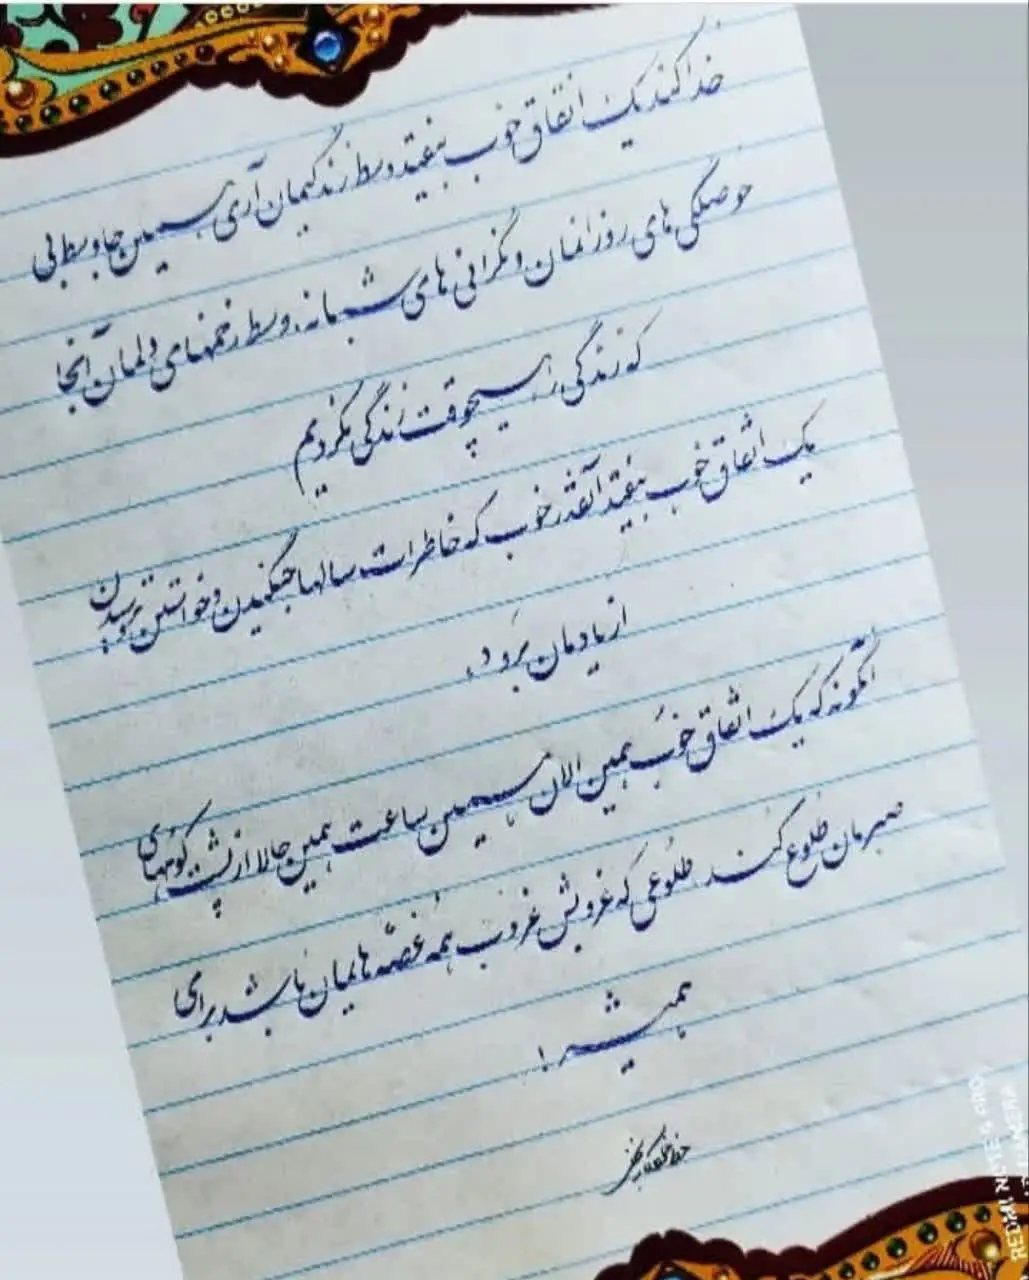 خدا کند یک اتفاق خوب بیفتد وسط زندگیمان آری همین جا وسط بی
حوصلگی های روزانمان و نگرانی های شبانه. وسط زخمهای دلمان آنجا
که زندگی را هیچوقت زندگی نکردیم
یک اتفاق خوب بیفتد آنقدر خوب که خاطرات سالها جنگیدن و خواستن و نرسیدن
از یادمان برود.
آنگونه که یک اتفاق خوب همین الان همین ساعت همین حالا از پشت کوههای
صبرمان طلوع کند. طلوعی که غروبش غروب همه غصه هایمان باشد برای
همیشه!
REDMI NOTE